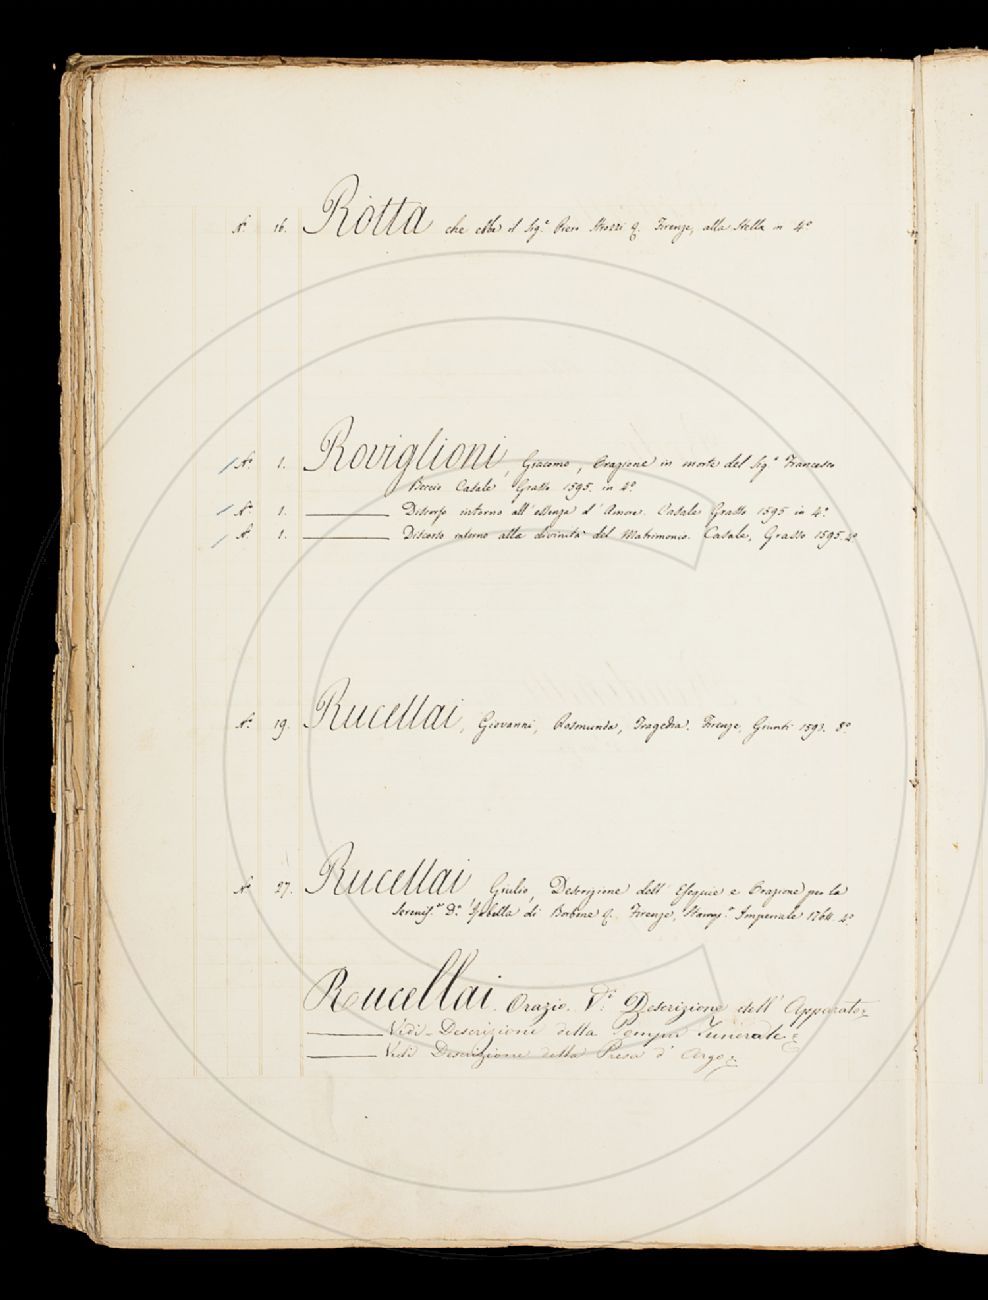 A.ᵉ 16. Rotta che ebbe il Sig.ʳ Piero Strozzi &. Firenze, alla Stella in 4º
A.ᵉ 1. Roviglioni, Giacomo, Orazione in morte del Sig.ʳ Francesco
Casale Grasso 1595. in 4º.
A.ᵉ 1. ——— Discorso intorno all'essenza d'Amore. Casale Grasso 1595 in 4º.
A.ᵉ 1. ——— Discorso intorno alla divinità del Matrimonio. Casale, Grasso 1595. 4º
A.ᵉ 19. Rucellai, Giovanni, Rosmunda, Tragedia. Firenze, Giunti 1593. 8º
A.ᵉ 27. Rucellai, Giulio, Descrizione dell'Esequie e Orazione per la
Sereniss.ᵃ D.ᵃ Isabella di Borbone &. Firenze, Stamp.ᵃ Imperiale 1764. 4º.
Rucellai. Orazio. V.ⁱ Descrizione dell'Apparato &
——— Vedi Descrizione della Pompa Funerale &
——— Vedi Descrizione della Presa d'Argo &